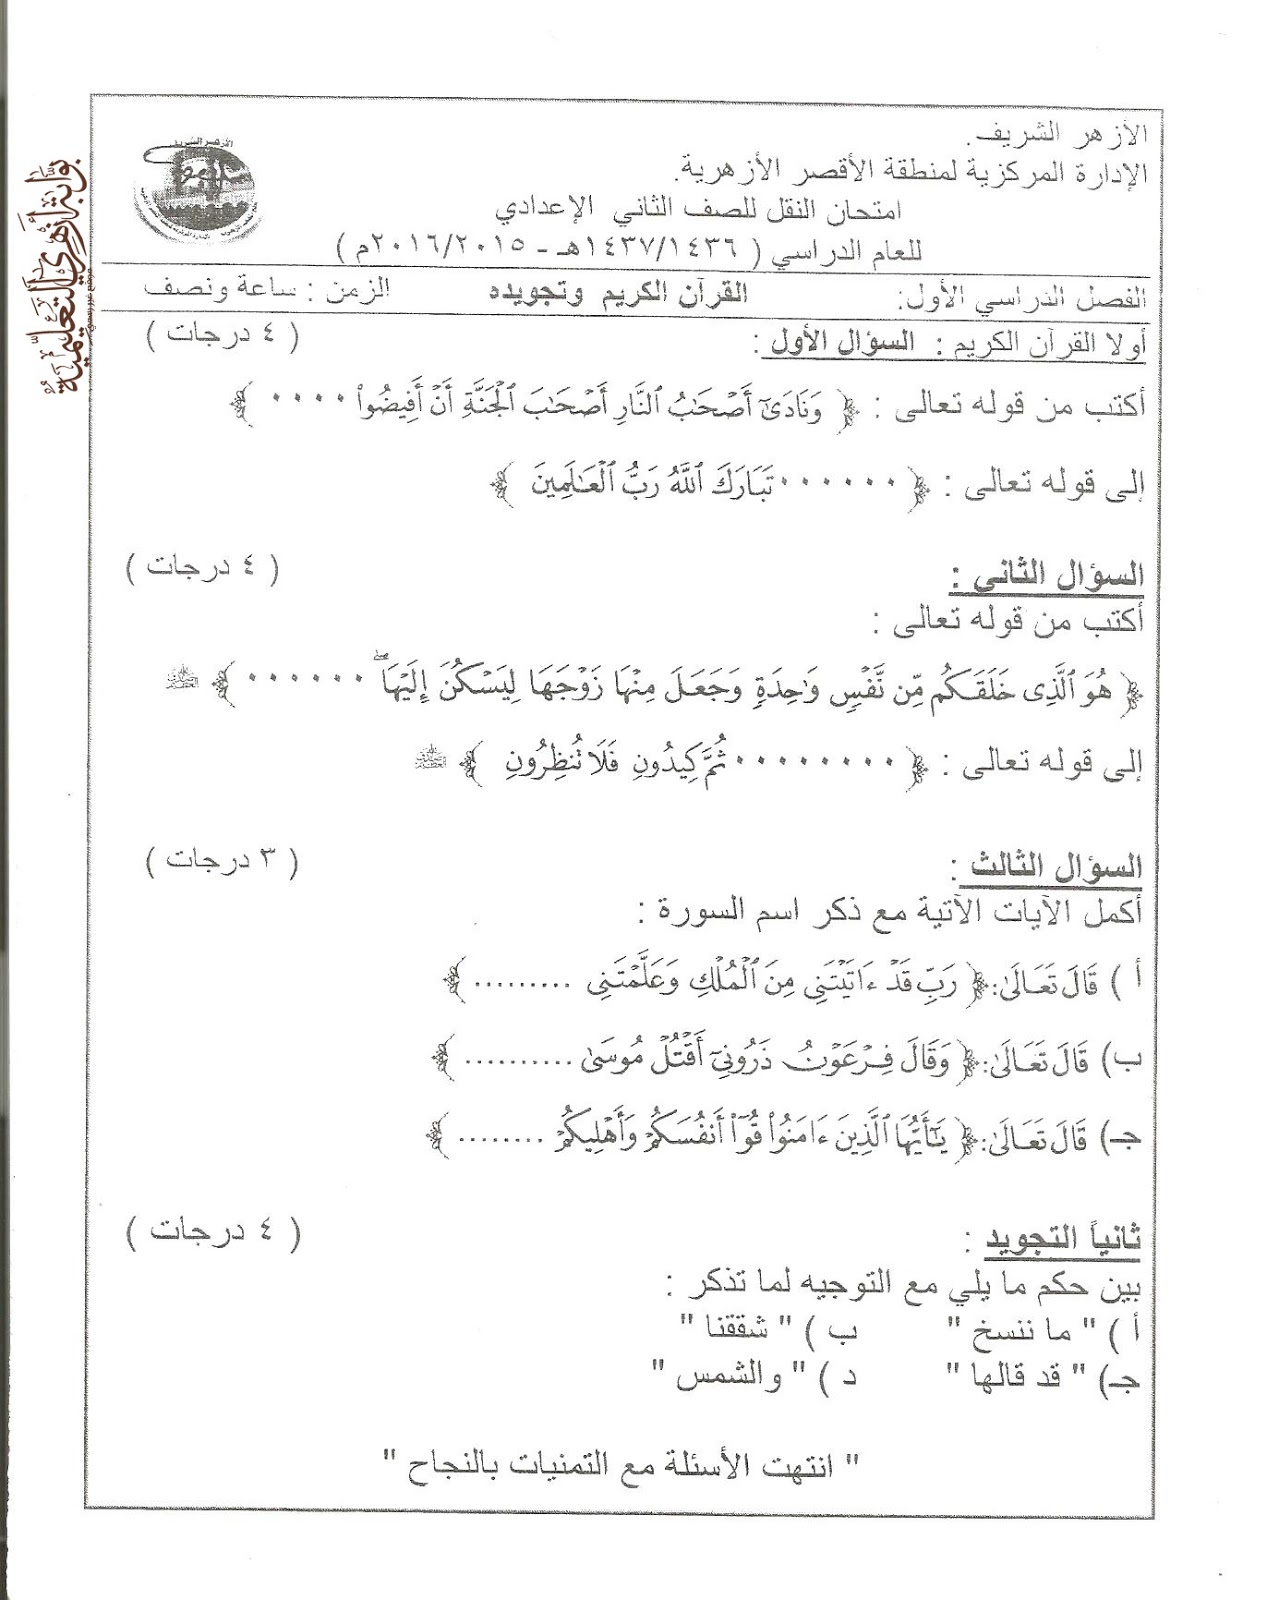 الأزهر الشريف.
الإدارة المركزية لمنطقة الأقصر الأزهرية.
امتحان النقل للصف الثاني الإعدادي
للعام الدراسي ( ١٤٣٧/١٤٣٦هـ - ٢٠١٦/٢٠١٥م )
الفصل الدراسي الأول: القرآن الكريم وتجويده الزمن : ساعة ونصف
أولا القرآن الكريم : السؤال الأول : ( ٤ درجات )
أكتب من قوله تعالى : ﴿ وَنَادَىٰٓ أَصْحَٰبُ ٱلنَّارِ أَصْحَٰبَ ٱلْجَنَّةِ أَنْ أَفِيضُوا۟ ٠٠٠٠ ﴾
إلى قوله تعالى : ﴿ ٠٠٠٠٠٠ تَبَارَكَ ٱللَّهُ رَبُّ ٱلْعَٰلَمِينَ ﴾
السؤال الثاني : ( ٤ درجات )
أكتب من قوله تعالى :
﴿ هُوَ ٱلَّذِى خَلَقَكُم مِّن نَّفْسٍ وَٰحِدَةٍ وَجَعَلَ مِنْهَا زَوْجَهَا لِيَسْكُنَ إِلَيْهَا ۖ ٠٠٠٠٠٠ ﴾
إلى قوله تعالى : ﴿ ٠٠٠٠٠٠٠٠٠ ثُمَّ كِيدُونِ فَلَا تُنظِرُونِ ﴾
السؤال الثالث : ( ٣ درجات )
أكمل الآيات الآتية مع ذكر اسم السورة :
أ ) قَالَ تَعَالَىٰ: ﴿ رَبِّ قَدْ ءَاتَيْتَنِى مِنَ ٱلْمُلْكِ وَعَلَّمْتَنِى ......... ﴾
ب) قَالَ تَعَالَىٰ: ﴿ وَقَالَ فِرْعَوْنُ ذَرُونِىٓ أَقْتُلْ مُوسَىٰ .......... ﴾
جـ) قَالَ تَعَالَىٰ: ﴿ يَٰٓأَيُّهَا ٱلَّذِينَ ءَامَنُوا۟ قُوٓا۟ أَنفُسَكُمْ وَأَهْلِيكُمْ ........ ﴾
ثانياً التجويد : ( ٤ درجات )
بين حكم ما يلي مع التوجيه لما تذكر :
أ ) " ما ننسخ " ب ) " شققنا "
جـ) " قد قالها " د ) " والشمس "
" انتهت الأسئلة مع التمنيات بالنجاح "
بوابة أزهري التعليمية